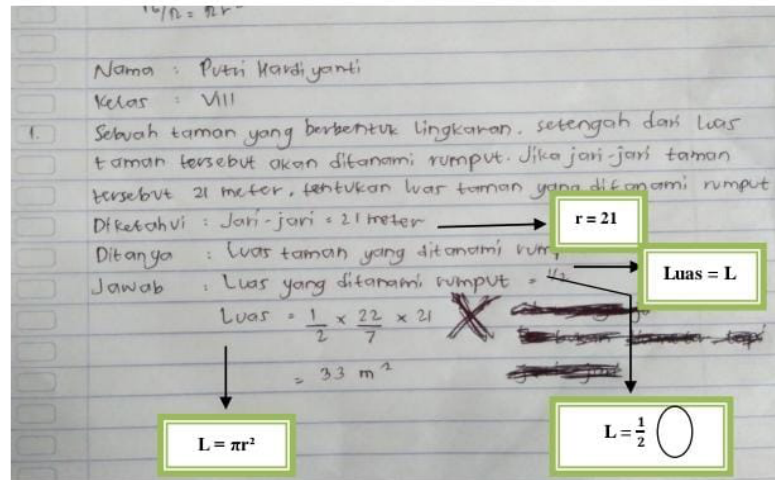 16/π = πr
Nama : Putri Hardiyanti
Kelas : VIII
1. Sebuah taman yang berbentuk lingkaran. setengah dari luas
taman tersebut akan ditanami rumput. Jika jari-jari taman
tersebut 21 meter, tentukan luas taman yang ditanami rumput
Diketahui : Jari-jari = 21 meter
r = 21
Ditanya : Luas taman yang ditanami
Luas = L
Jawab : Luas yang ditanami rumput = 1/2
Luas = 1/2 × 22/7 × 21
= 33 m²
L = πr²
L = 1/2